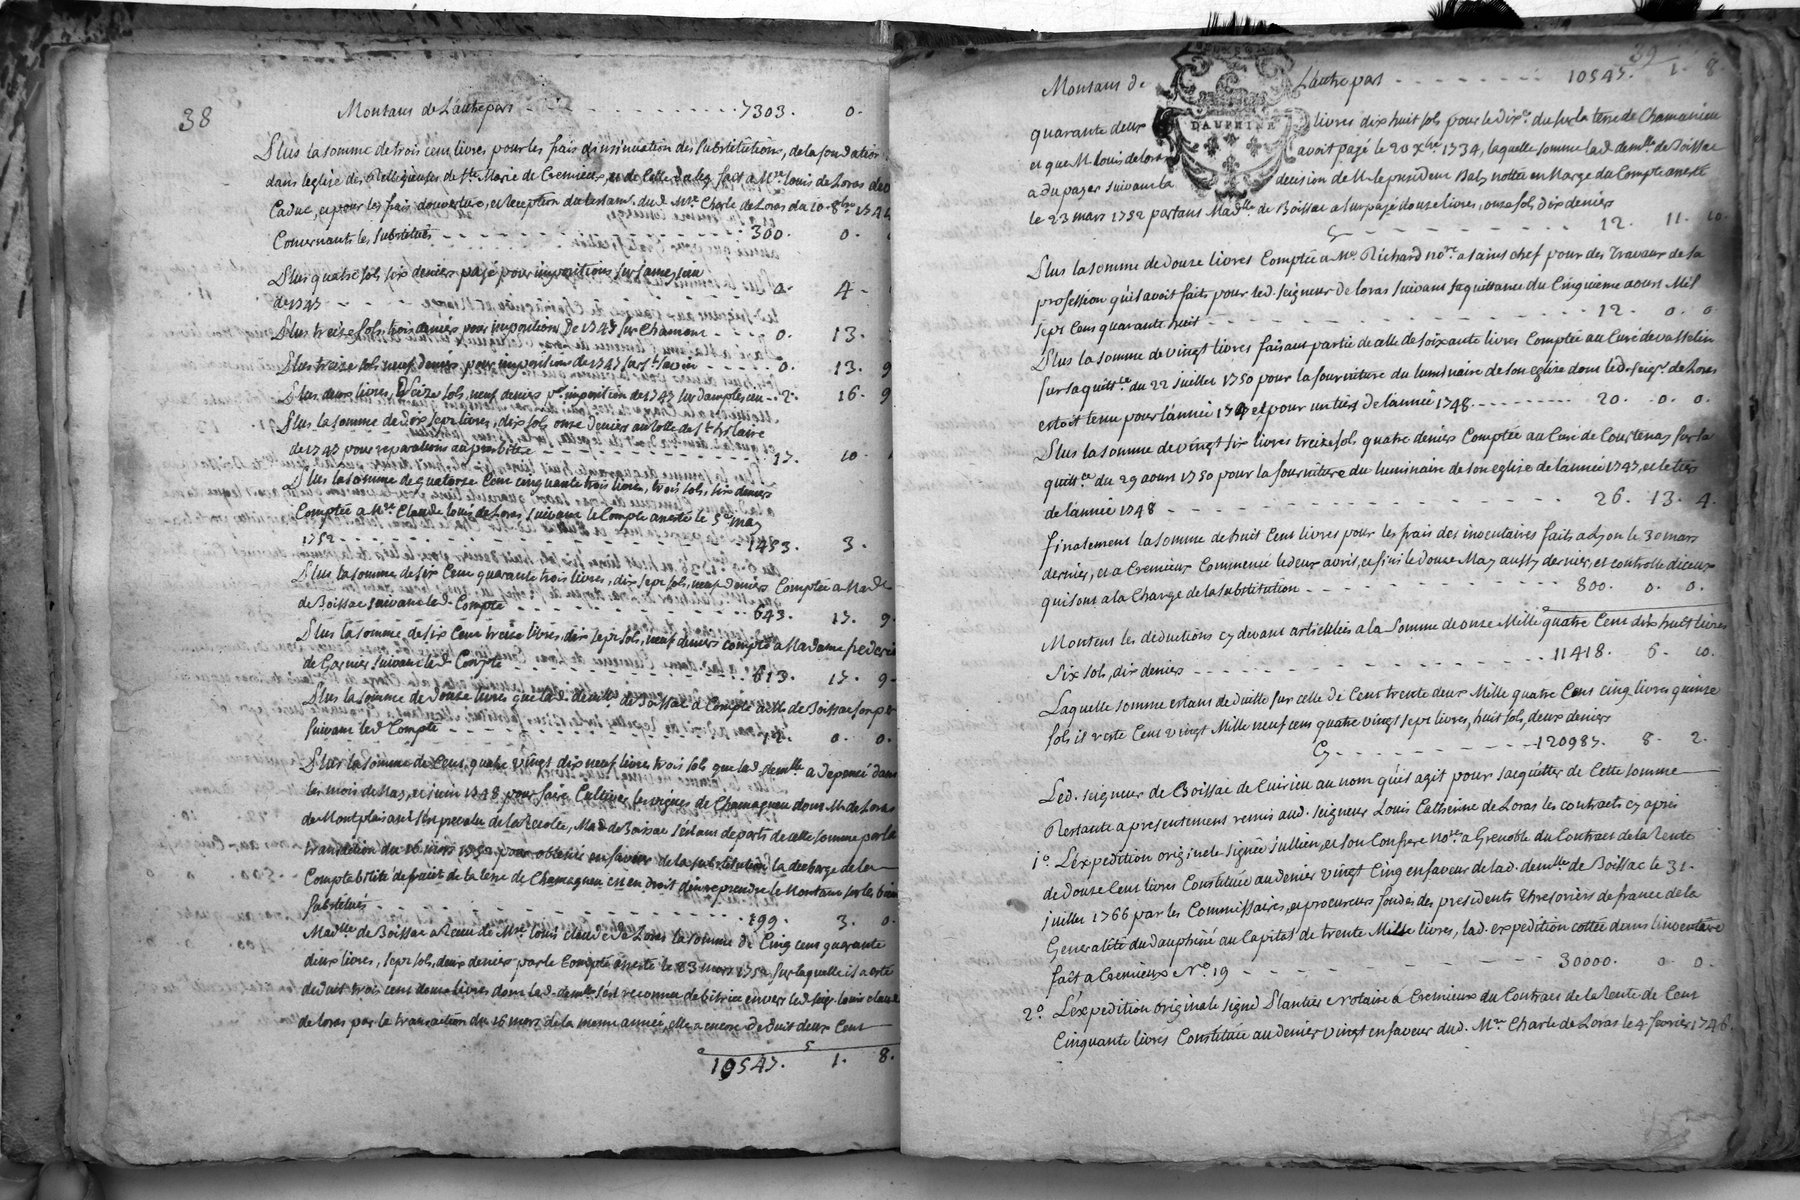 38
Montans de L'autrepars - - - - - - - - 7303. 0.
Plus la somme de trois cent livres pour les frais d'insinuation des substitutions, de la fondation
dans leglise des Relligieuses de Ste Marie de Cremieux, et de Celle du leg fait a Mre louis de Loras
Caduc, et pour les frais d'ouverture, et Reception du testam. dud Mre Charle de Loras du 10 8bre
Concernants les substitués - - - - - - 300. 0.
Plus quatre sols six deniers payé pour impositions sur
de 1747 - - - - - 0. 4.
Plus treize sols trois deniers pour impositions De 1747 sur Chamont - - - 0. 13.
Plus treize sols neuf deniers pour imposition de 1747 sur St Savin - - - - 0. 13. 9
Plus deux livres, Seize sols, neuf deniers pr imposition de 1747 sur dampleseu - - 2. 16. 9
Plus la somme de Dix sept livres, dix sols onze deniers au rolle de St hilaire
de 1747 pour reparations au presbitere - - - - - 17. 10.
Plus la somme de quatorze Cent cinquante trois livres, trois sols, six deniers
Comptée a Mre Claude louis de Loras suivant le Compte aresté le 5e may
1752 - - - - - - 1453. 3.
Plus la somme de six Cent quarante trois livres, dix sept sols, neuf deniers Comptée a Made
de Boissac suivant led. Compte - - - - - 643. 17. 9.
Plus la somme de six Cent treize livres, dix sept sols, neuf deniers compté a Madame
de Garnier suivant led. Compte - - - - - 613. 17. 9.
Plus la somme de Douze livres que lad. demlle de Boissac a Compté a Mr de Boissac son
suivant led Compte - - - - - - 12. 0. 0.
Plus la somme de Cent quatre vingt dix neuf livres trois sols que lad. demlle a depencé dans
les mois de May, et juin 1748 pour faire Cultiver les vignes de Chamagneu dont Mr de Loras
de Montplaisant s'est prevalu de la Recolte, Mad de Boissac s'estant de parti de cette somme par la
transaction du 16 mars 1752 pour obtenir en faveur de la substitution la decharge de la
Comptabilité de fruits de la terre de Chamagneu est en droit d'en reprendre le Montant sur les bien
substitués - - - - - - 199. 3. 0.
Madlle de Boissac a Receu de Mre louis claude De Loras la somme de Cinq cent quarante
deux livres, sept sols, deux deniers par le Compte aresté le 23 mars 1752 sur laquelle il a esté
deduit trois cent douze livres dont lad. demlle s'est reconnue debitrice envers led seigr louis claude
de loras par la transaction du 16 mars de la meme année, elle a encore deduit deux Cent
10547. 1. 8.
39
Montans de L'autre pars - - - - - - 10547. 1. 8.
DAUPHINE
quarante deux livres dix huit sols pour le dixe. du sur la terre de Chamanieu
et que M louis de loras avoit payé le 20 Xbre 1734, laquelle somme lad. demlle de Boissac
a du payer suivant la decision de M. le president Baly nottée en Marge du Compte aresté
le 23 mars 1752 partant Madlle. de Boissac a surpayé douze livres, onze sols dix deniers
Cy - - - - - - - 12. 11. 10.
Plus la somme de Douze livres Comptée a Me Richard nore a saint chef pour des travaux de sa
profession qu'il avoit faits pour led. seigneur de loras suivant sa quittance du Cinquieme aoust Mil
sept Cent quarante huit - - - - - - 12. 0. 0.
Plus la somme de vingt livres faisant partie de celle de soixante livres Comptée au Curé de vasselin
sur sa quittce du 22 juillet 1750 pour la fourniture du luminaire de son eglise dont led. seigr. de Loras
estoit tenu pour l'année 1747 et pour un tiers de l'année 1748 - - - - - - 20. 0. 0.
Plus la somme de vingt six livres treize sols quatre deniers Comptée au Curé de Courtenay sur sa
quittce du 29 aoust 1750 pour la fourniture du luminaire de son eglise de l'année 1747, et le tiers
de l'année 1748 - - - - - - 26. 13. 4.
finalement la somme de huit Cent livres pour les frais des inventaires faits a Lyon le 30 mars
dernier, et a Cremieux Commencé le deux avril, et fini le douze May aussy dernier, et controlle diceux
qui sont a la Charge de la substitution - - - - - - 800. 0. 0.
Montent les deductions cy devant articlées a la somme de onze Mille quatre Cent dix huit livres
six sols, dix deniers - - - - - - 11418. 6. 10.
Laquelle somme estant deduitte sur celle de Cent trente deux Mille quatre Cent cinq livres quinze
sols il reste Cent vingt Mille neuf cent quatre vingt sept livres, huit sols, deux deniers
Cy - - - - - - 120987. 8. 2.
Led. seigneur de Boissac de Cuirieu au nom qu'il agit pour s'acquitter de Cette somme
Restante a presentement remis aud. seigneur Louis Catherine de Loras les contracts cy apres
1o. L'expedition originele signée jullien, et son Confrere nore a Grenoble du Contract de la Rente
de douze Cent livres Constituée au denier vingt Cinq en faveur de lad. demlle de Boissac le 31.
juillet 1766 par les Commissaires, et procureurs fondés des presidents thresoriers de france de la
Generalité du dauphiné au Capital de trente Mille livres, lad. expedition cottée dans l'inventaire
fait a Cremieux No. 19 - - - - - - 30000. 0. 0.
2o. L'expedition originale signé Plantier notaire a Cremieux du Contract de la Rente de Cent
Cinquante livres Constituée au denier vingt en faveur dud. Mre Charle de Loras le 4 fevrier 1746.